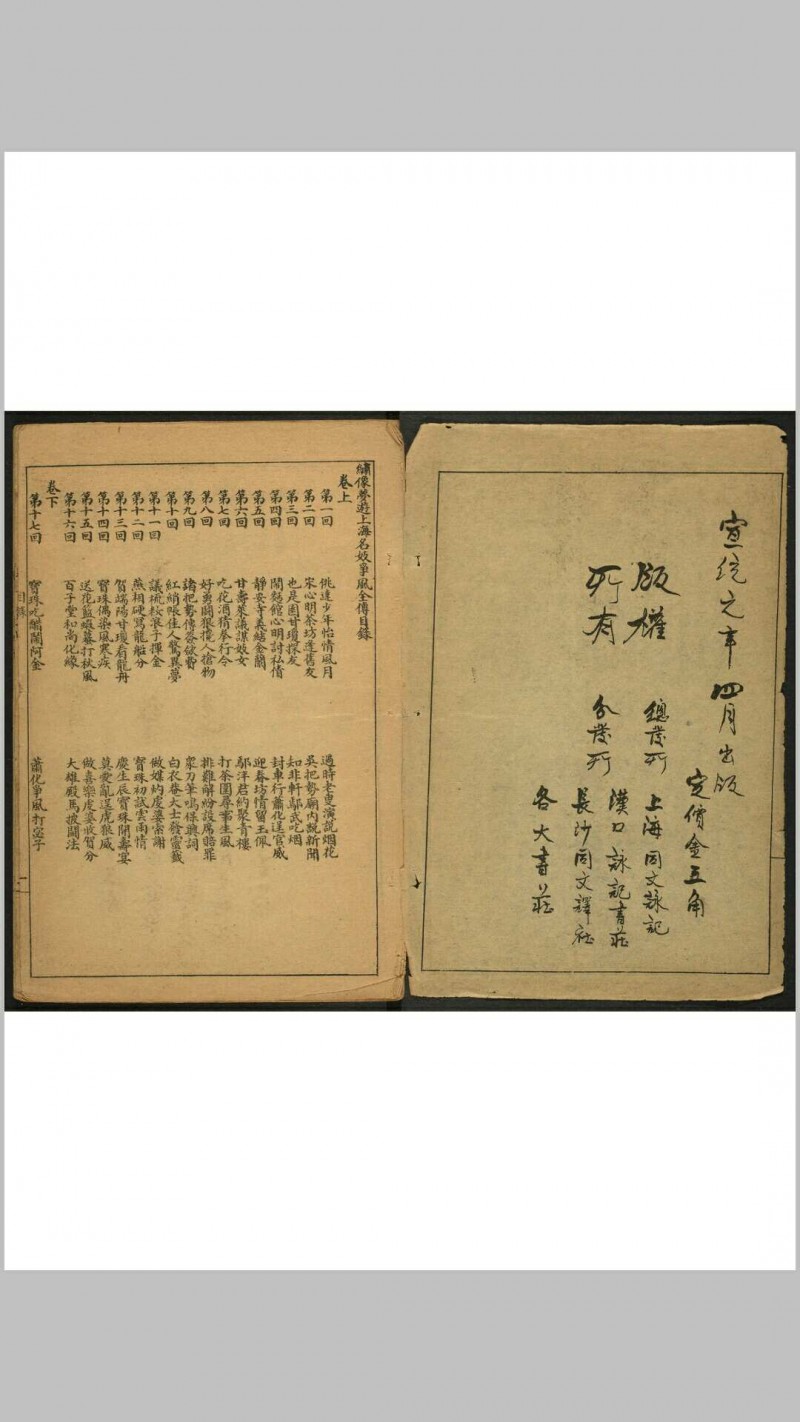 宣統元年四月出版
定價金五角
版權
所有
總發所 上海同文詠記
分發所 漢口詠記書莊
長沙同文譯社
各大書莊
繡像夢遊上海名妓爭風全傳目錄
卷上
第一回 佻達少年怡情風月 過時老叟演説烟花
第二回 宋心明茶坊逢舊友 吳把勢廟内説新聞
第三回 也是園甘瓊探友 知非軒鄔武吃烟
第四回 鬧麪館心明討私情 封車行蕭化逞官威
第五回 靜安寺義結金蘭 迎春坊情留玉佩
第六回 甘壽萊議謀妓女 鄔洋君約聚青樓
第七回 吃花酒猜拳行令 打茶圍尋事生風
第八回 好勇鬭狠攬人搶物 排難解紛設席賠罪
第九回 諸把勢傳簽欲費 衆刀筆鳴保興詞
第十回 紅綃帳佳人驚異夢 白衣菴大士發靈籤
第十一回 議梳妝浪子揮金 做媒妁虔婆索謝
第十二回 燕相硬罵龍船分 寳珠初試雲雨情
第十三回 賀端陽甘瓊看龍舟 慶生辰寳珠開壽宴
第十四回 寳珠偶染風寒疾 莫愛亂逞虎狼威
第十五回 送花籃癩蟇打秋風 做喜樂虔婆收賀分
第十六回 百子堂和尚化緣 大雄殿馬披鬭法
卷下
第十七回 寳珠吃醋鬧阿金 蕭化爭風打宓子
目錄